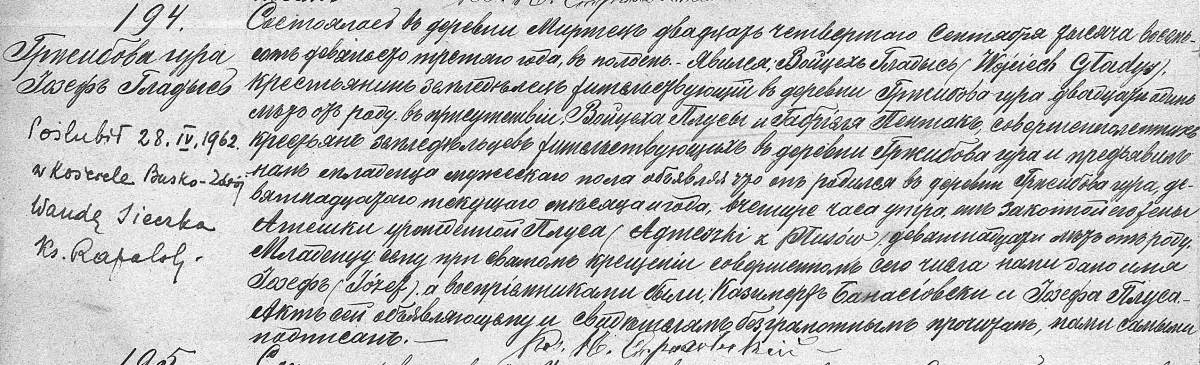 194.
Гржибова гура
Іозефъ Гладысъ
Poślubił 28.IV.1962
w Kościele Busko-Zdrój
Wandę Sieczka
Ks. Rapalo
Состоялось въ деревни двадцать четвертаго Сентября тысяча восемь-
сотъ девяносто третьяго года, въ полдень. Явился, Войцехъ Гладысъ (Wojciech Gladys),
крестьянинъ земледѣлецъ жительствующій въ деревни Гржибова гура двадцати одинъ
лѣтъ отъ роду, въ присутствіи, Войцеха Плусы и Габріэля Пентакъ, совершеннолѣтнихъ
крестьянъ земледѣльцевъ жительствующихъ въ деревни Гржибова гура и предъявилъ
намъ младенца мужескаго пола объявляя что онъ родился въ деревни Гржибова гура, де-
вятнадцатаго текущаго мѣсяца и года, въ четыре часа утра, отъ законной его жены
Агнешки урожденной Плуса (Agnieszki z Plusów) девятнадцати лѣтъ отъ роду.
Младенцу сему при святомъ крещеніи совершенномъ сего числа нами дано имя
Іозефъ (Józef), а воспріемниками были, Казимержъ и Іозефа Плуса.
Актъ сей объявляющему и свидѣтелямъ безграмотнымъ прочитанъ, нами самыми
подписанъ. —
195.